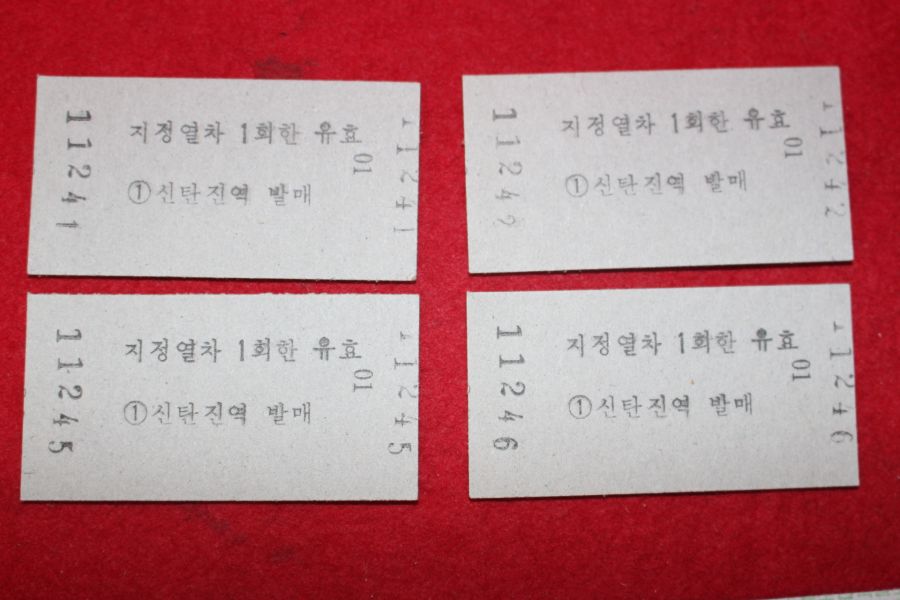 11241
지정열차 1회한 유효
01
①신탄진역 발매
11241
11242
지정열차 1회한 유효
01
①신탄진역 발매
11242
11245
지정열차 1회한 유효
01
①신탄진역 발매
11245
11246
지정열차 1회한 유효
01
①신탄진역 발매
11246